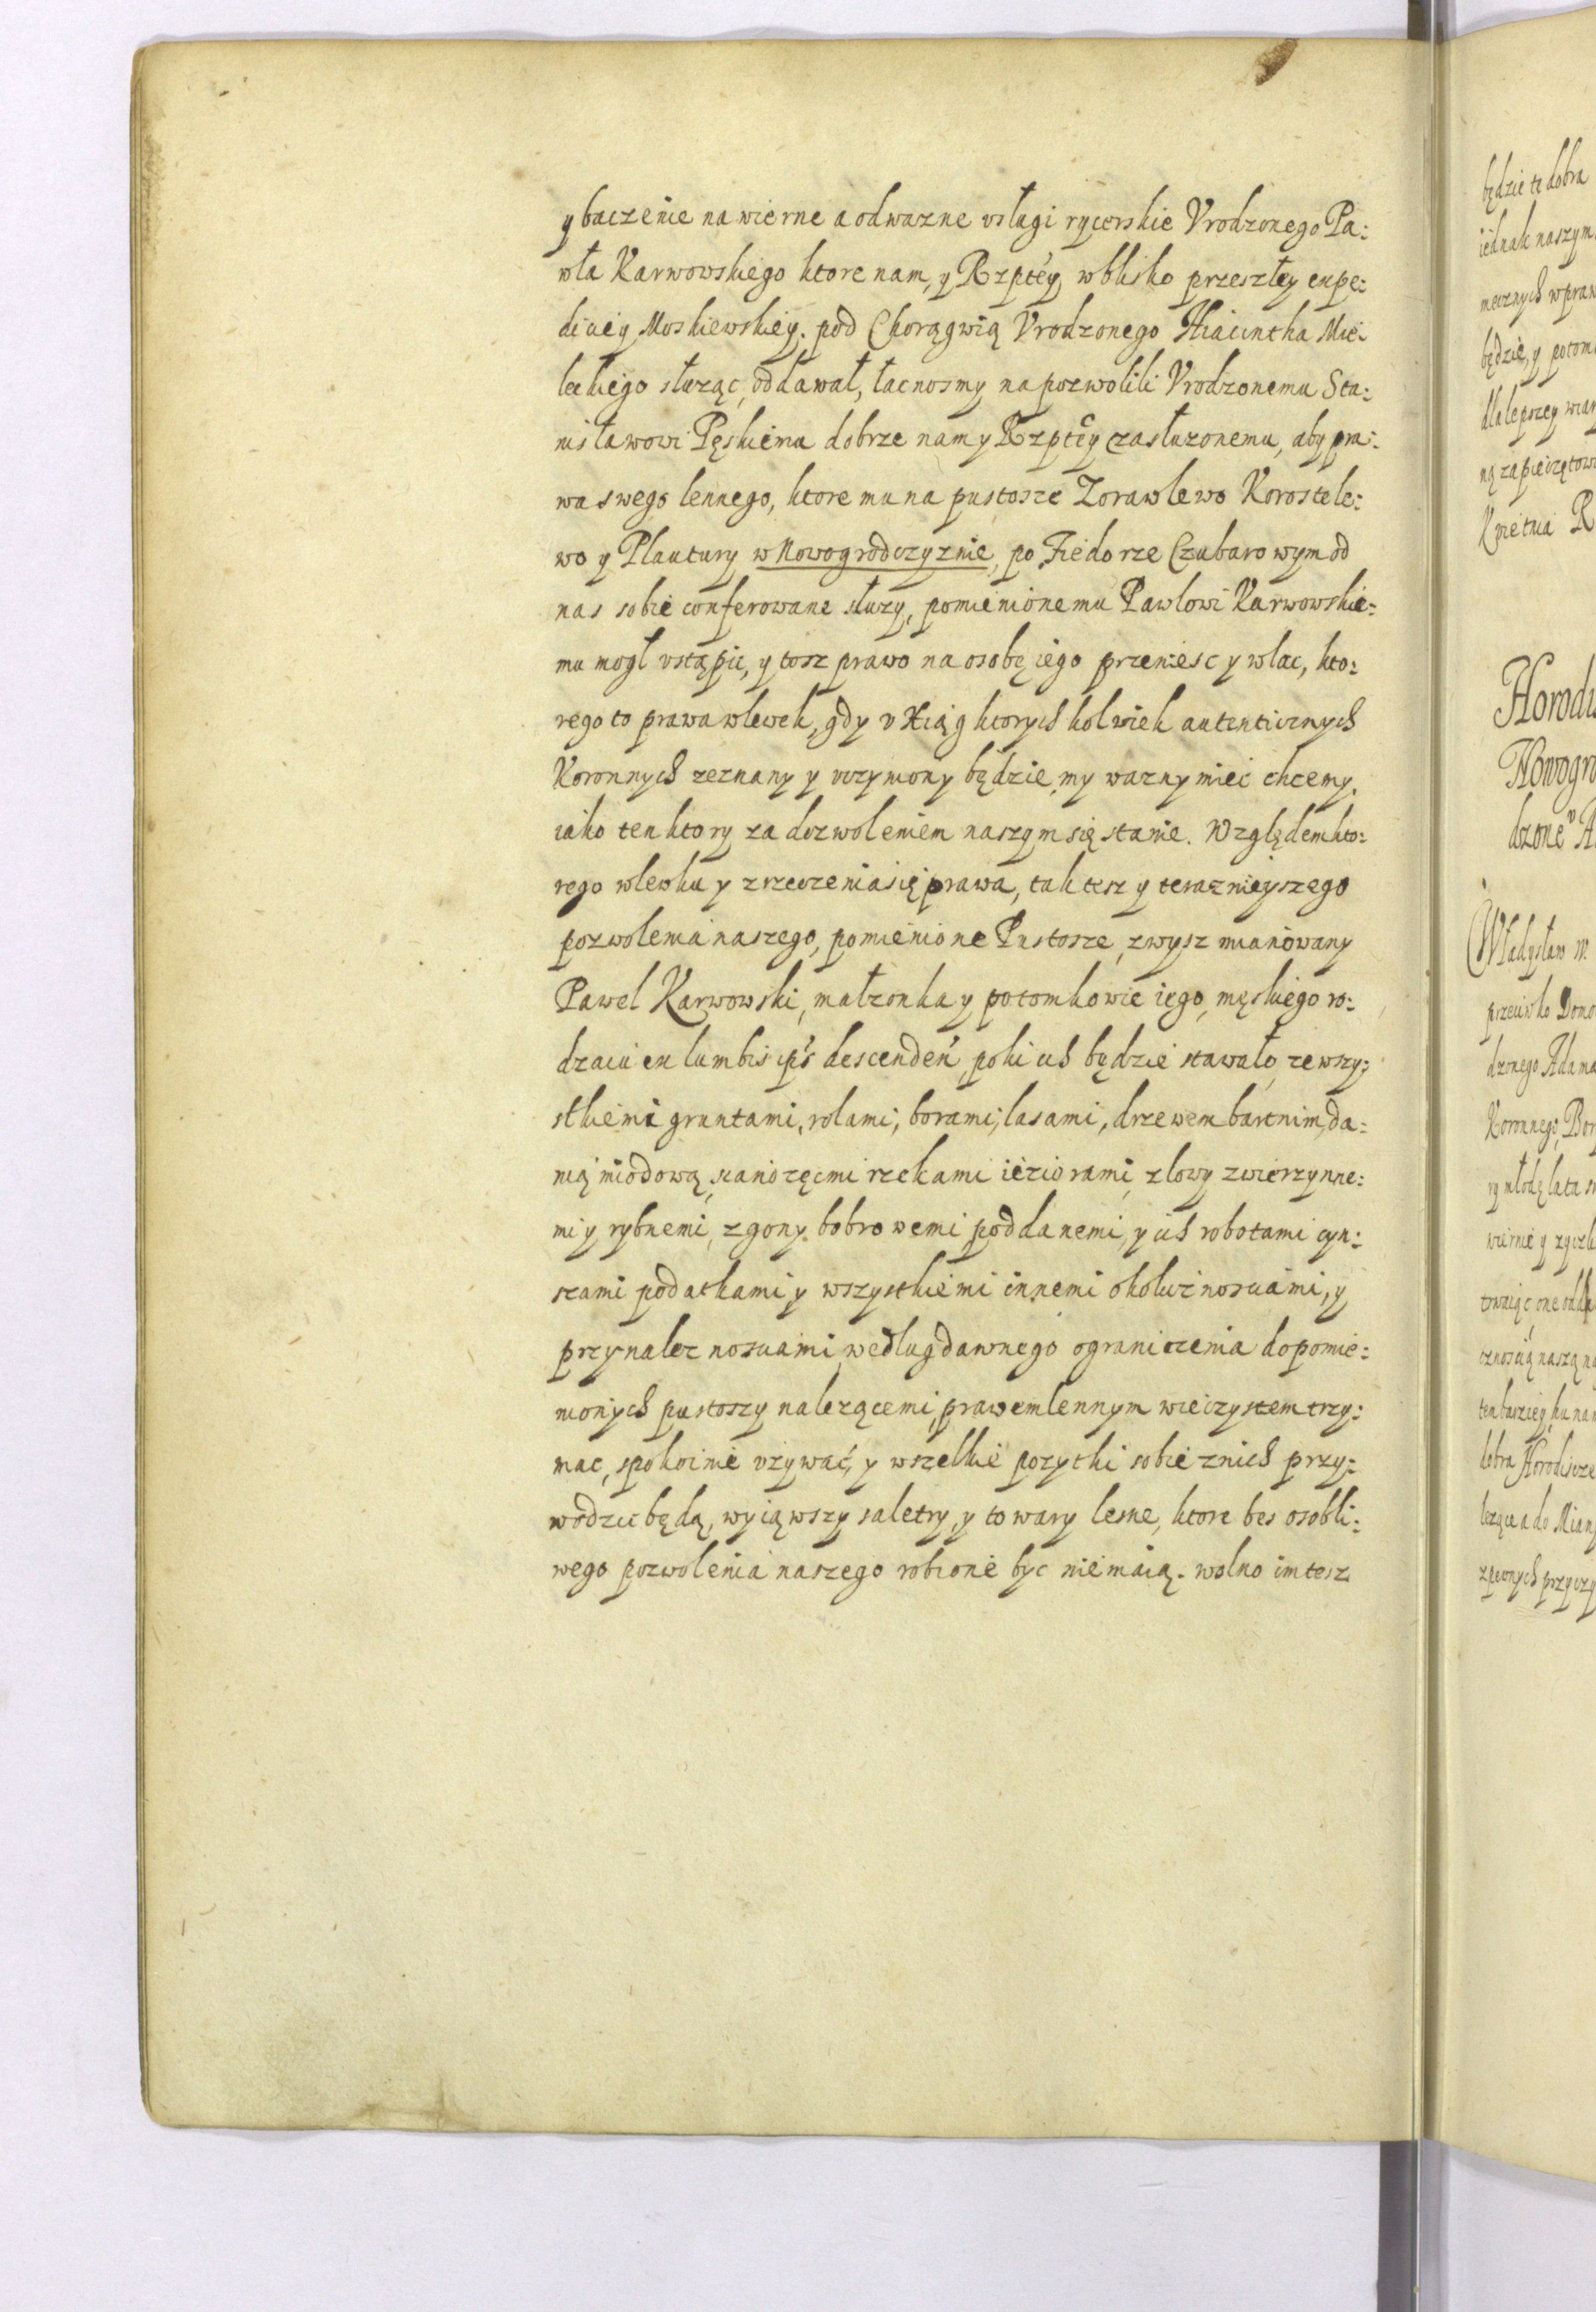 y baczenie na wierne a odwazne vsługi rycerskie Vrodzonego Pa:
wła Karwowskiego ktore nam, y Rzptey, w blisko przeszłey expe:
diciey Moskiewskiey. pod Chorągwią Vrodzonego Hiacintha Mie:
leckiego służąc, oddawał, łacnosmy na pozwolili Vrodzonemu Sta:
nisławowi Pęskiemu dobrze nam y Rzptey zasłuzonemu, aby pra:
wa swego lennego, ktore mu na pustosze Zorawlewo Korostele:
wo y Plautury w Nowogrodczyznie, po Fiedorze Czubarowym od
nas sobie conferowane służy, pomienionemu Pawlowi Karwowskie:
mu mogł vstąpic, y tosz prawo na osobę iego przeniesc y wlac, kto:
rego to prawa wlewek, gdy v Xiąg ktorychkolwiek autenticznych
Koronnych zeznany y vczymony będzie, my wazny miec chcemy,
iako ten ktory za dozwoleniem naszym się stanie. Względem kto:
rego wlewku y zrzeczenia się prawa, tak tesz y teraznieyszego
pozwolenia naszego, pomienione Pustosze, zwysz mianowany
Pawel Karwowski, małzonka y potomkowie iego, męskiego ro:
dzaiu ex lumbis ips descenden, poki ich będzie stawało, ze wszy:
stkiemi gruntami, rolami, borami, lasami, drzewem bartnim, da:
nią miodową, sianozęcmi rzekami ieziorami, z lowy zwierzynne:
mi y rybnemi, z gony bobrowemi poddanemi, y ich robotami cyn:
szami podatkami y wszystkiemi innemi okolicznosciami, y
przynaleznosciami według dawnego ograniczenia do pomie:
nionych pustoszy nalezącemi, prawem lennym wieczystem trzy:
mac, spokoinie vżywać, y wszelkie pozytki sobie z nich przy:
wodzic będą, wyiąwszy saletry, y towary lesne, ktore bes osobli:
wego pozwolenia naszego robione byc nie maią. wolno im tesz
będzie te dobra
iednak naszym
necznych w praw
będzie, y potom
dla lepszey wiar
ną zapieczętow
Kwietnia R
Horodi
Nowogro
dzone A
Władysław IV.
przeciwko Domo
dzonego Adama
Koronnego, Bor
ry młodę lata s
wiernie y zyczli
trwaiąc one odda
cznoscią naszą na
ten barziey ku nam
dobra Horodiscze
lezące a do Mian
z pewnych przyczy